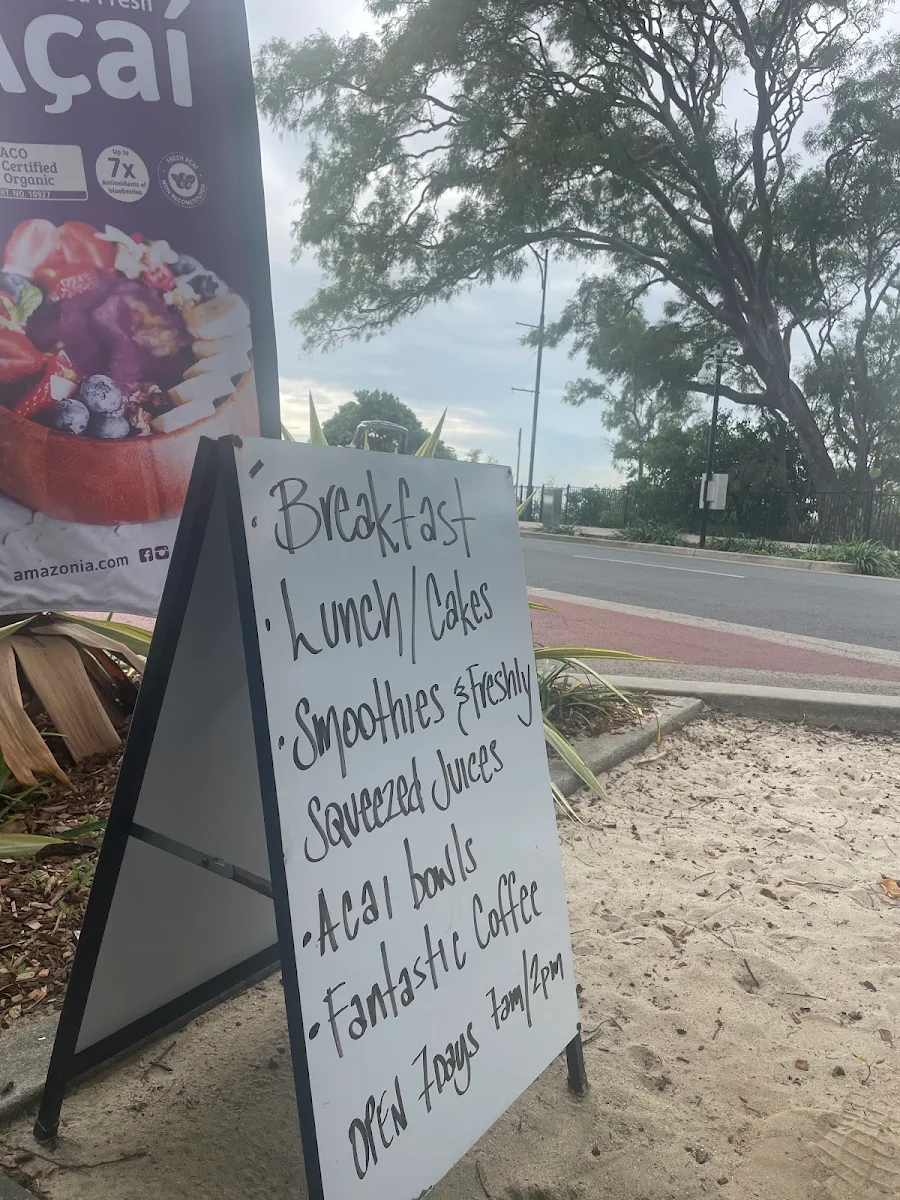 Açaí
ACO
Certified
Organic
RT. NO. 10927
Up to
7x
Antioxidants of
blueberries
FRESH AÇAÍ
amazonia.com
Breakfast
· Lunch/Cakes
· Smoothies & Freshly
Squeezed Juices
· Acai bowls
· Fantastic Coffee
OPEN 7days 7am/2pm